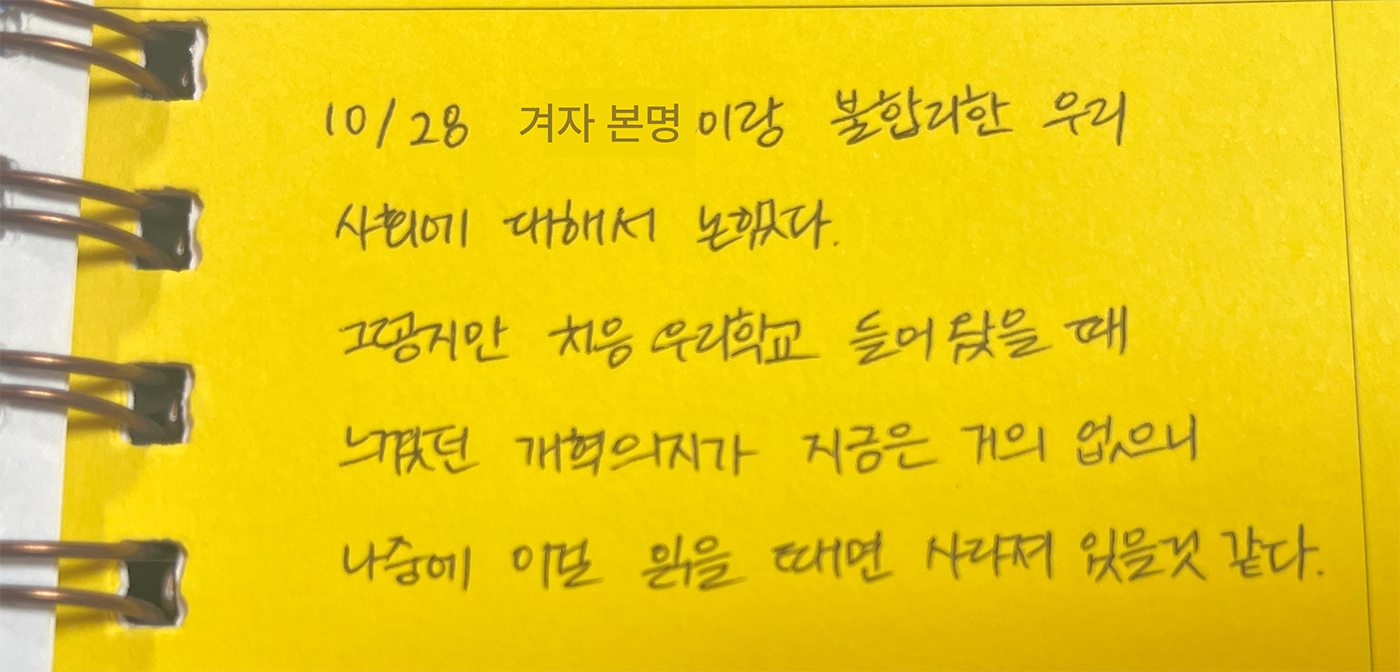 10/28 겨자 본명 이랑 불합리한 우리
사회에 대해서 논했다.
그렇지만 처음 우리학교 들어 왔을 때
느꼈던 개혁의지가 지금은 거의 없으니
나중에 이걸 읽을 때면 사라져 있을것 같다.